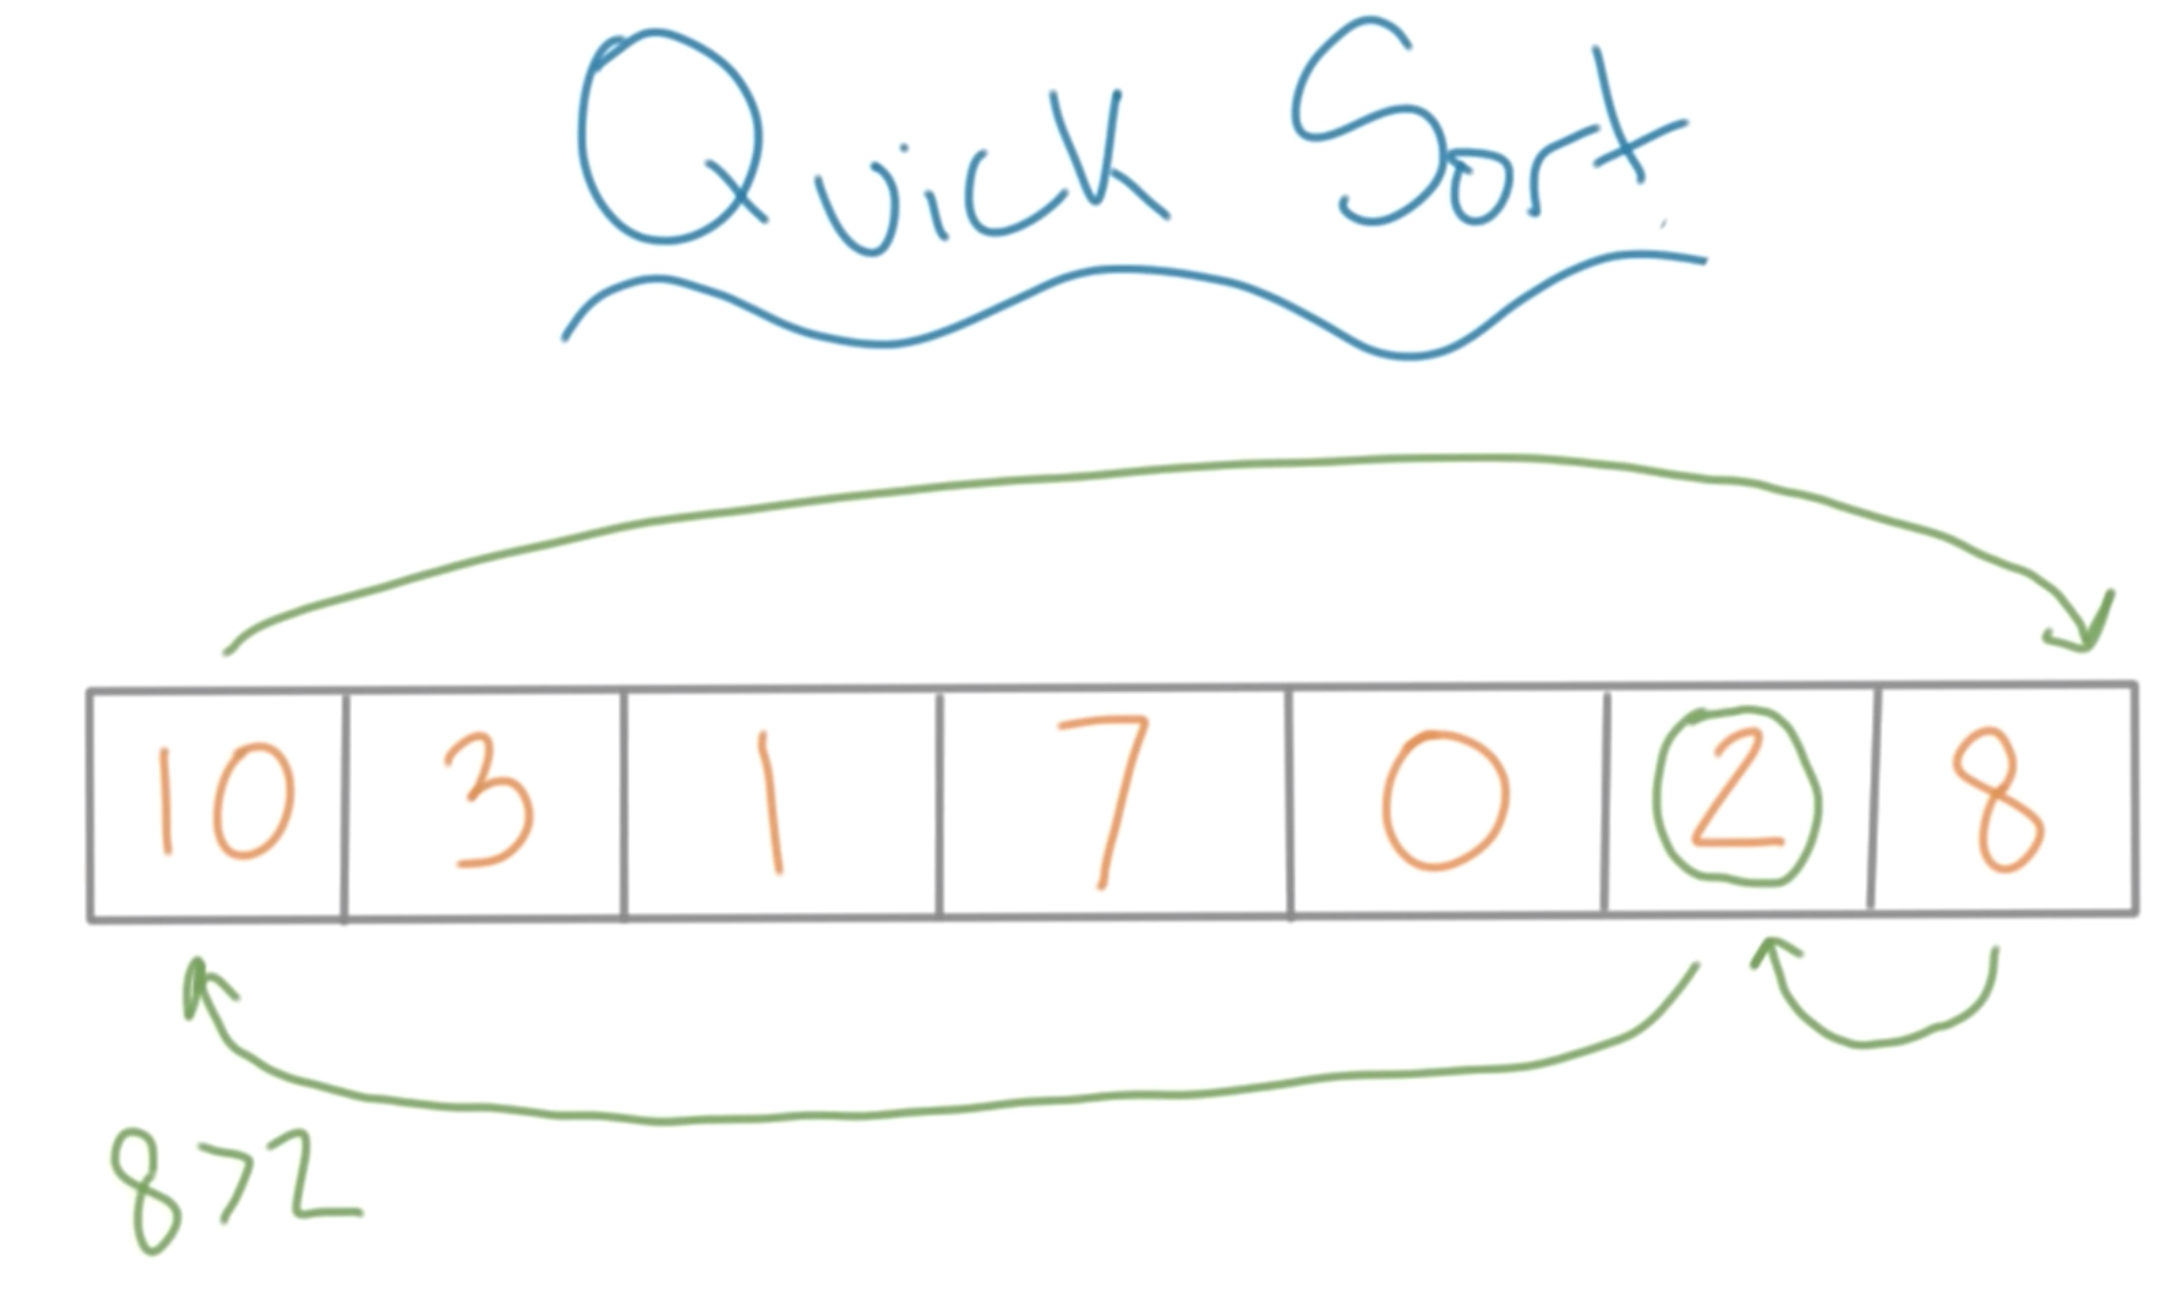 Quick Sort
10 3 1 7 0 2 8
8>2